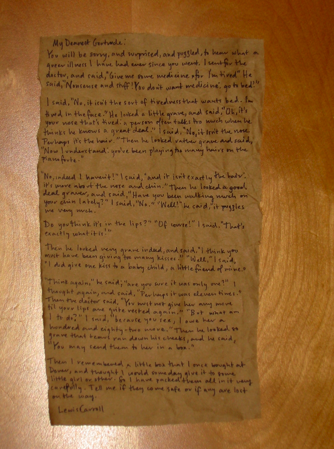 My Dearest Gertrude:
You will be sorry, and surprized, and puzzled, to hear what a
queer illness I have had ever since you went. I sent for the
doctor, and said, "Give me some medicine for I'm tired." He
said, "Nonsense and stuff! You don't want medicine: go to bed!"
I said, "No, it isn't the sort of tiredness that wants bed. I'm
tired in the face." He looked a little grave, and said, "Oh, it's
your nose that's tired: a person often talks too much when he
thinks he knows a great deal." I said, "No, it isn't the nose.
Perhaps it's the hair." Then he looked rather grave, and said,
"Now I understand: you've been playing too many hairs on the
pianoforte."
"No, indeed I haven't!" I said, "and it isn't exactly the hair:
it's more about the nose and chin." Then he looked a good
deal graver, and said, "Have you been walking much on
your chin lately?" I said, "No." "Well!" he said, "it puzzles
me very much.
Do you think it's in the lips?" "Of course!" I said. "That's
exactly what it is!"
Then he looked very grave indeed, and said, "I think you
must have been giving too many kisses." "Well," I said,
"I did give one kiss to a baby child, a little friend of mine."
"Think again," he said; "are you sure it was only one?" I
thought again, and said, "Perhaps it was eleven times."
Then the doctor said, "You must not give her any more
till your lips are quite rested again." "But what am
I to do?" I said, "because you see, I owe her a
hundred and eighty-two more." Then he looked so
grave that tears ran down his cheeks, and he said,
"You may send them to her in a box."
Then I remembered a little box that I once bought at
Dover, and thought I would someday give it to some
little girl or other. So I have packed them all in it very
carefully. Tell me if they come safe or if any are lost
on the way.
Lewis Carroll